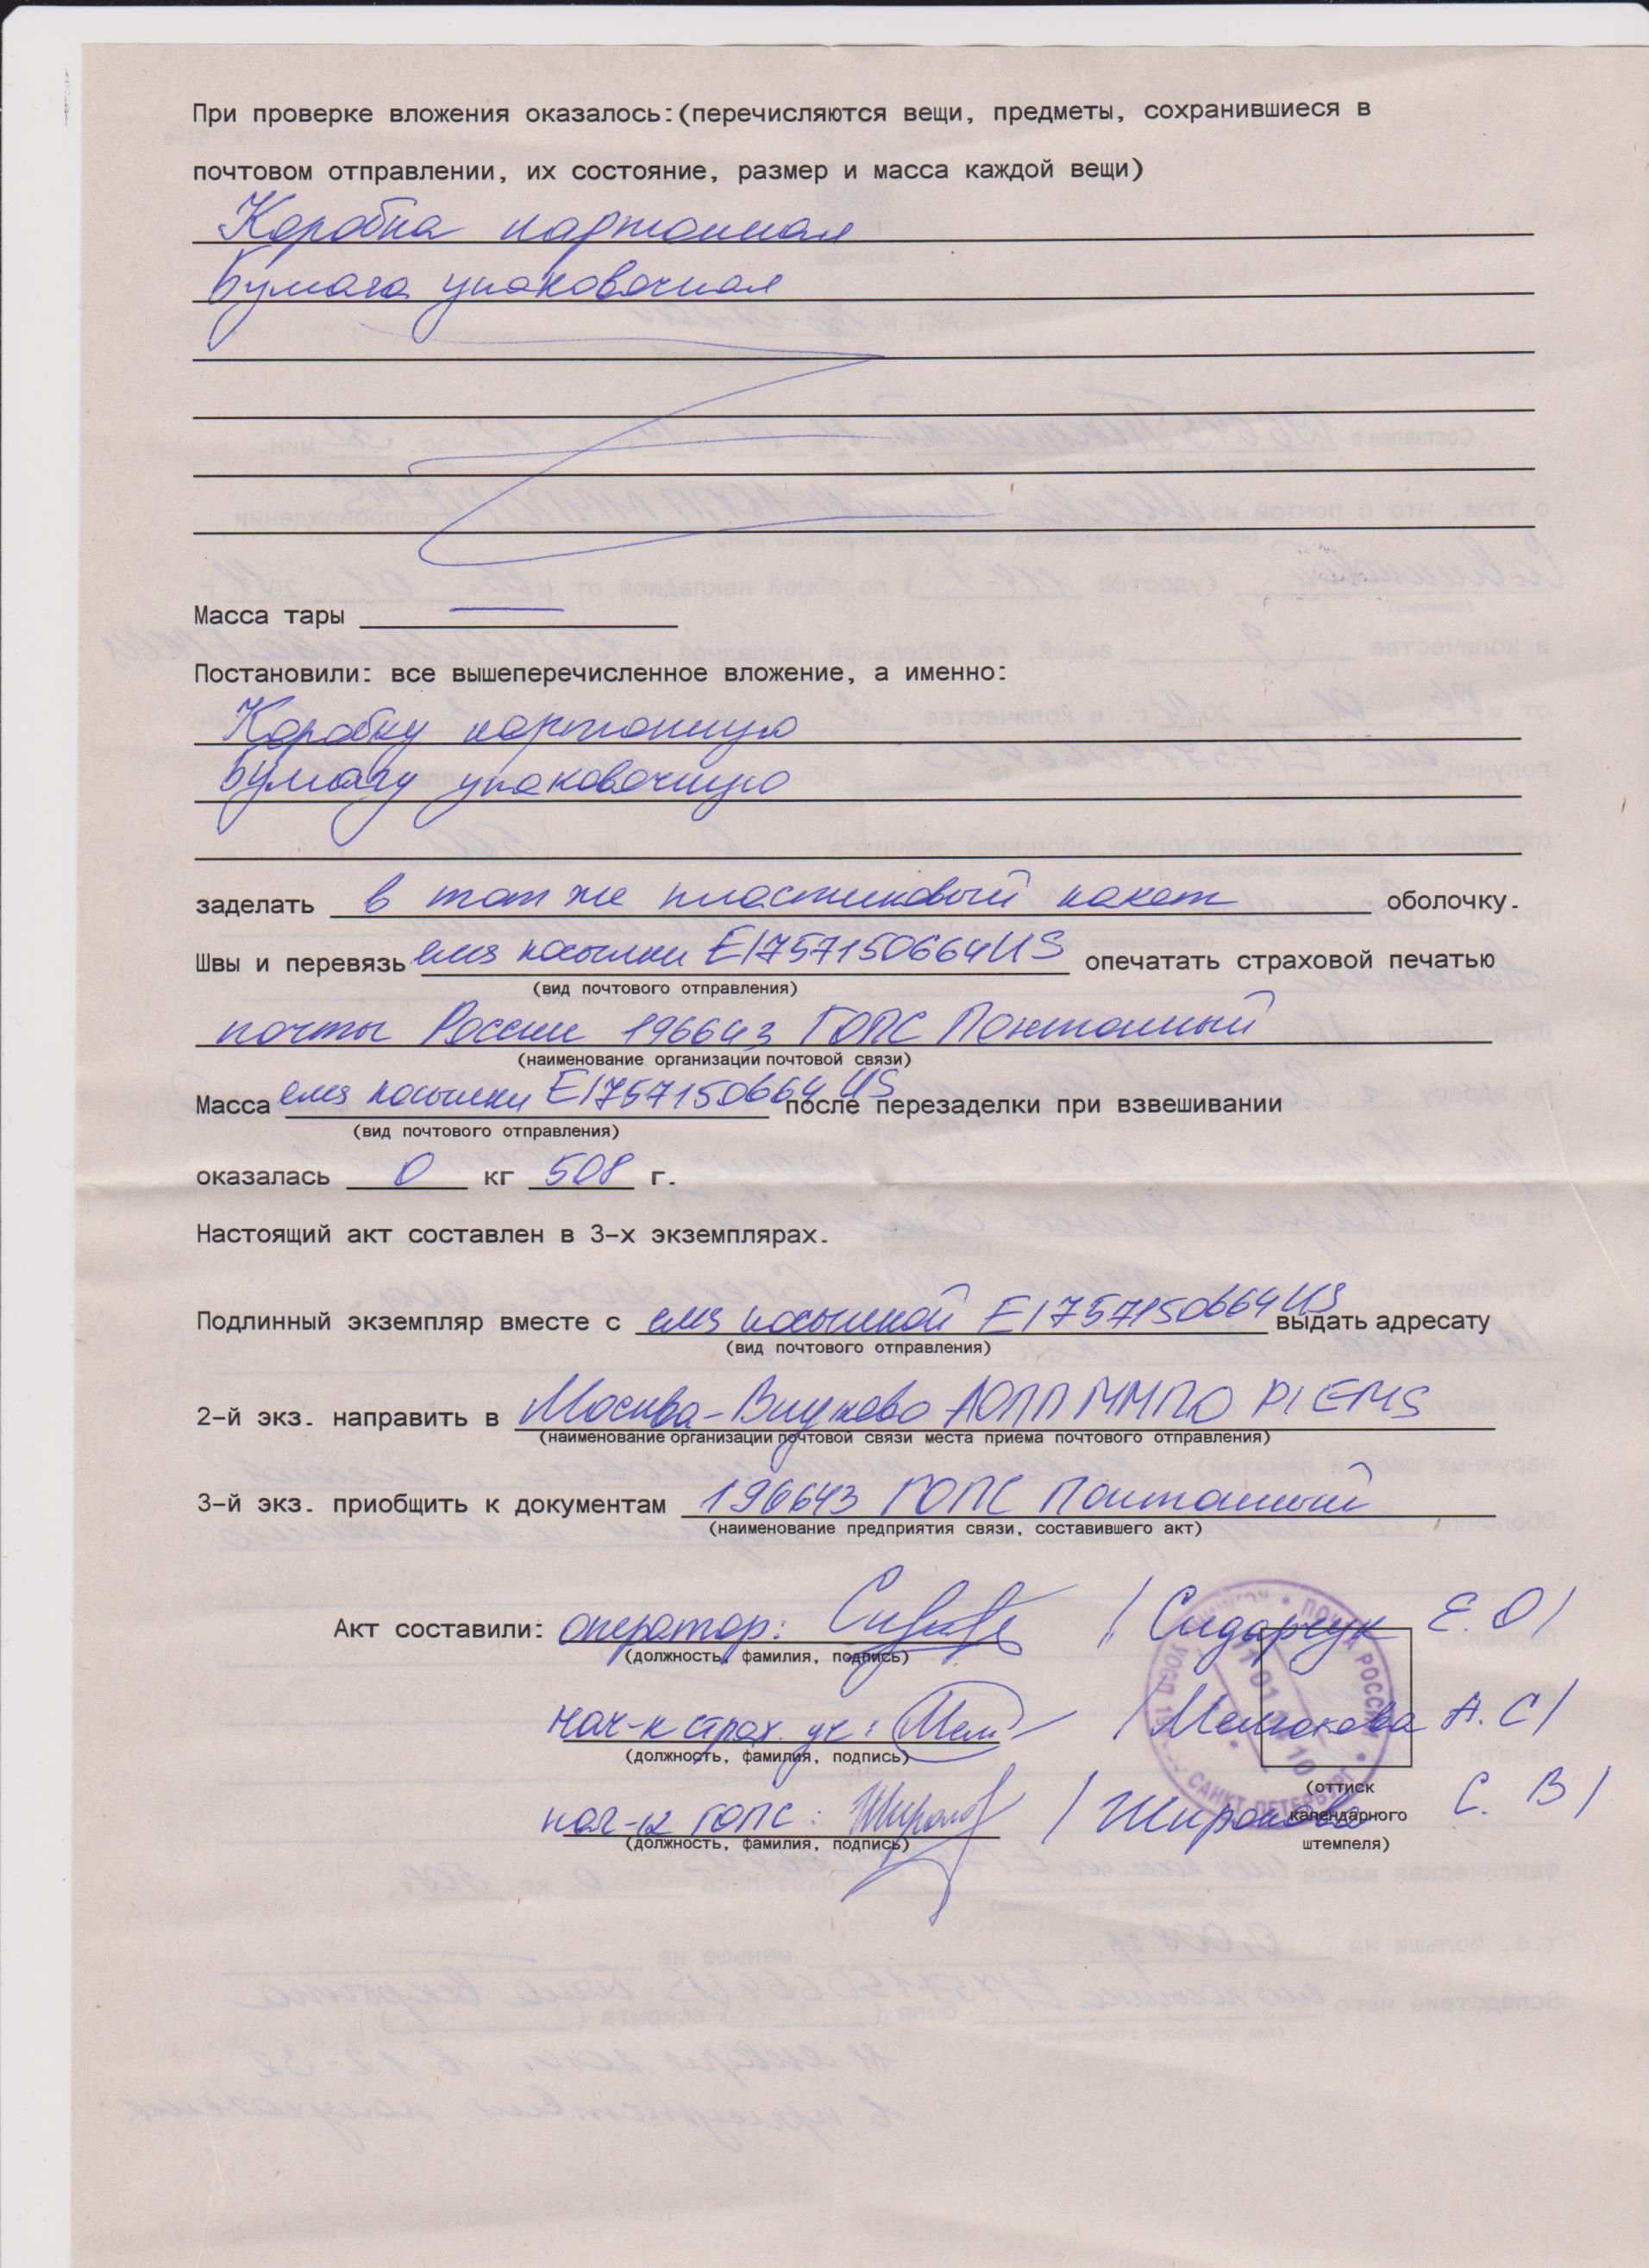 При проверке вложения оказалось:(перечисляются вещи, предметы, сохранившиеся в
почтовом отправлении, их состояние, размер и масса каждой вещи)
Коробка картонная
Бумага упаковочная
Масса тары —
Постановили: все вышеперечисленное вложение, а именно:
Коробку картонную
Бумагу упаковочную
заделать в тот же пластиковый пакет оболочку.
Швы и перевязь емs посылки EI757150664US опечатать страховой печатью
(вид почтового отправления)
почты России 196643 ГОПС Понтонный
(наименование организации почтовой связи)
Масса емs посылки EI757150664US после перезаделки при взвешивании
(вид почтового отправления)
оказалась 0 кг 508 г.
Настоящий акт составлен в 3-х экземплярах.
Подлинный экземпляр вместе с емs посылкой EI757150664US выдать адресату
(вид почтового отправления)
2-й экз. направить в Москва-Внуково АОПП ММПО PI EMS
(наименование организации почтовой связи места приема почтового отправления)
3-й экз. приобщить к документам 196643 ГОПС Понтонный
(наименование предприятия связи, составившего акт)
Акт составили: оператор: / Сидарчук Е.О/
(должность, фамилия, подпись)
нач-к страх. уч: / А.С/
(должность, фамилия, подпись)
(оттиск
нач-к ГОПС: / С. В/
календарного
(должность, фамилия, подпись)
штемпеля)
ПОЧТА РОССИИ
САНКТ-ПЕТЕРБУРГ